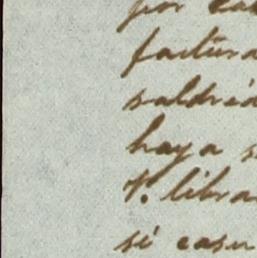 por
factura
saldrá
haya
V. libra
si casu